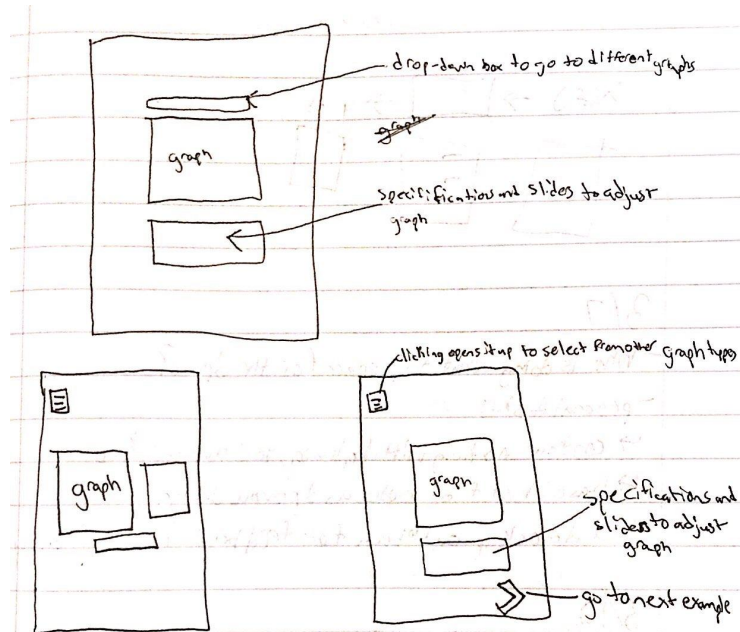 drop-down box to go to different graphs
graph
graph
specifification and slides to adjust
graph
clicking opens it up to select from other graph types
graph
graph
specifications and
sliders to adjust
graph
go to next example